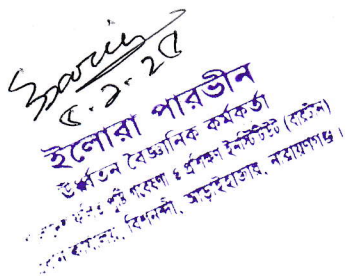 ৫.১.২৫
ইলোরা পারভীন
উর্ধ্বতন বৈজ্ঞানিক কর্মকর্তা
ফলিত পুষ্টি গবেষণা ও প্রশিক্ষণ ইনস্টিটিউট (বারটান)
কার্যালয়, বিশনন্দী, আড়াইহাজার, নারায়ণগঞ্জ।